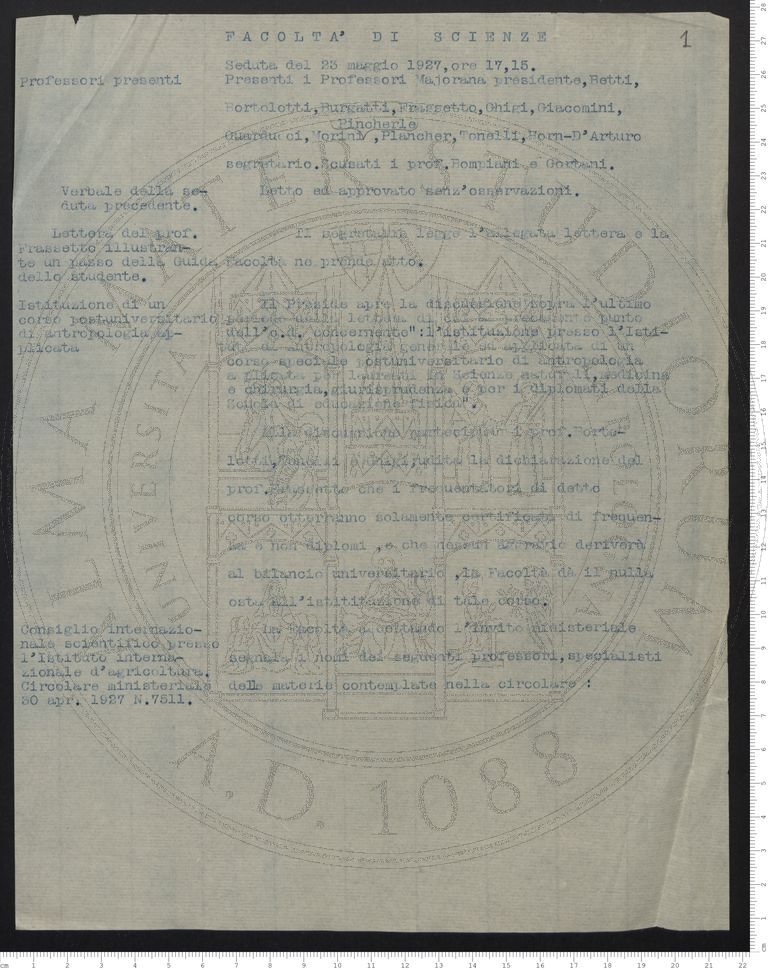 FACOLTA' DI SCIENZE
1
Seduta del 23 maggio 1927,ore 17,15.
Professori presenti
Presenti i Professori Majorana presidente,Betti,
Bortolotti,Burgatti,Frassetto,Ghigi,Giacomini,
Pincherle
Guarducci,Morini ,Plancher,Tonelli,Horn-D'Arturo
segretario.Scusati i prof.Bompiani e Gortani.
Verbale della se-
duta precedente.
Letto ed approvato senz'osservazioni.
Lettera del prof.
Frassetto illustran-
te un passo della Guida
dello studente.
Il segretario legge l'allegata lettera e la
Facoltà ne prende atto.
Istituzione di un
corso postuniversitario
di antropologia ap-
plicata
Il Preside apre la discussione sopra l'ultimo
periodo della lettera di cui al precedente punto
dell'o.d. concernente":l'istituzione presso l'Isti-
di antropologia generale ed applicata di un
corso speciale postuniversitario di antropologia
applicata per laureati in Scienze naturali,medicina
e chirurgia,giurisprudenza e per i diplomati della
Scuola di educazione fisica".
Alla discussione partecipano i prof.Borto-
lotti,Tonelli e Ghigi,udita la dichiarazione del
prof.Frassetto che i frequentatori di detto
corso otterranno solamente certificati di frequen-
za e non diplomi ,e che nessun aggravio deriverà
al bilancio universitario ,la Facoltà dà il nulla
osta all'istitituzione di tale corso.
Consiglio internazio-
nale scientifico presso
l'Istituto interna-
zionale d'agricoltura.
Circolare ministeriale
30 apr. 1927 N.7511.
La Facoltà accettando l'invito ministeriale
segnala i nomi dei seguenti professori,specialisti
delle materie contemplate nella circolare :
ALMA MATER STUDIORUM
UNIVERSITA
A.D. 1088